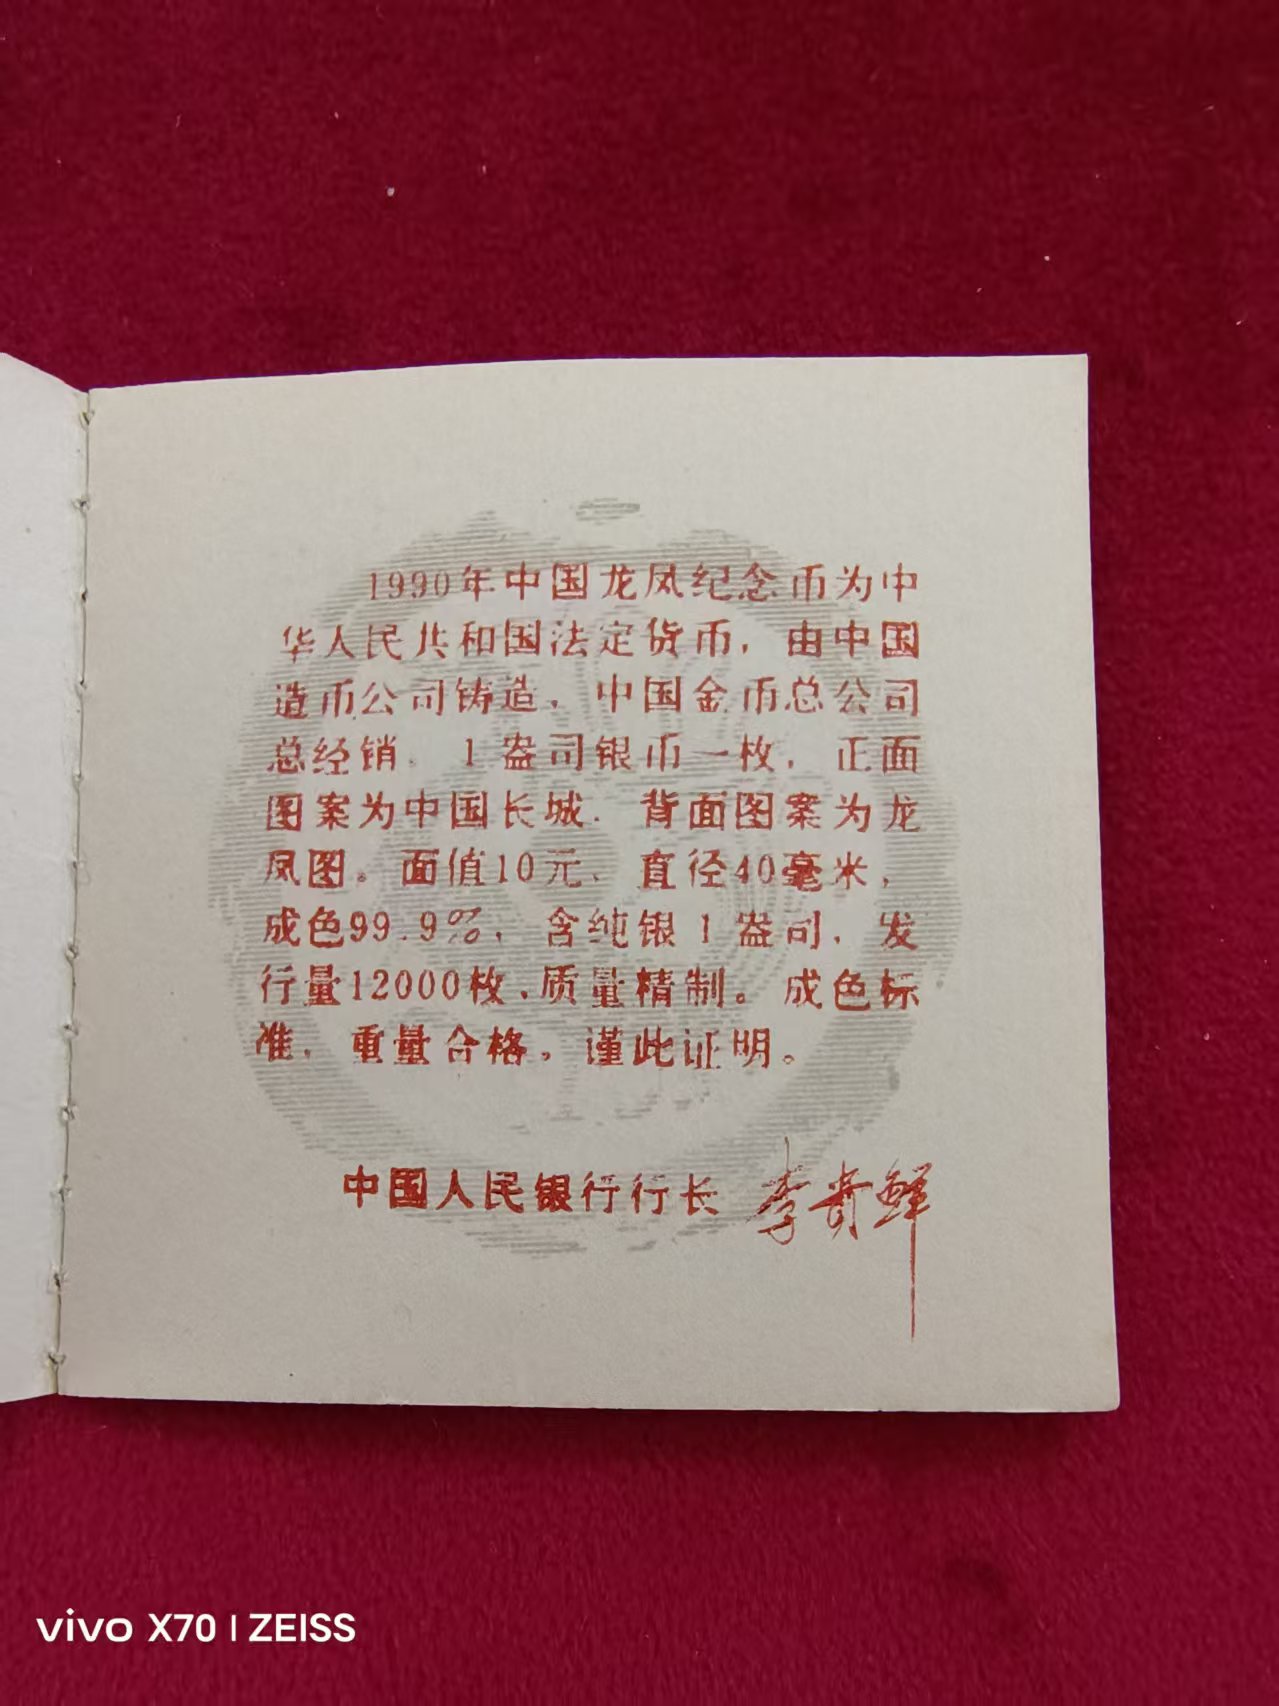 1990年中国龙凤纪念币为中
华人民共和国法定货币，由中国
造币公司铸造，中国金币总公司
总经销。1盎司银币一枚，正面
图案为中国长城，背面图案为龙
凤图。面值10元，直径40毫米，
成色99.9%，含纯银1盎司，发
行量12000枚，质量精制。成色标
准，重量合格，谨此证明。
中国人民银行行长 李贵鲜
vivo X70 | ZEISS